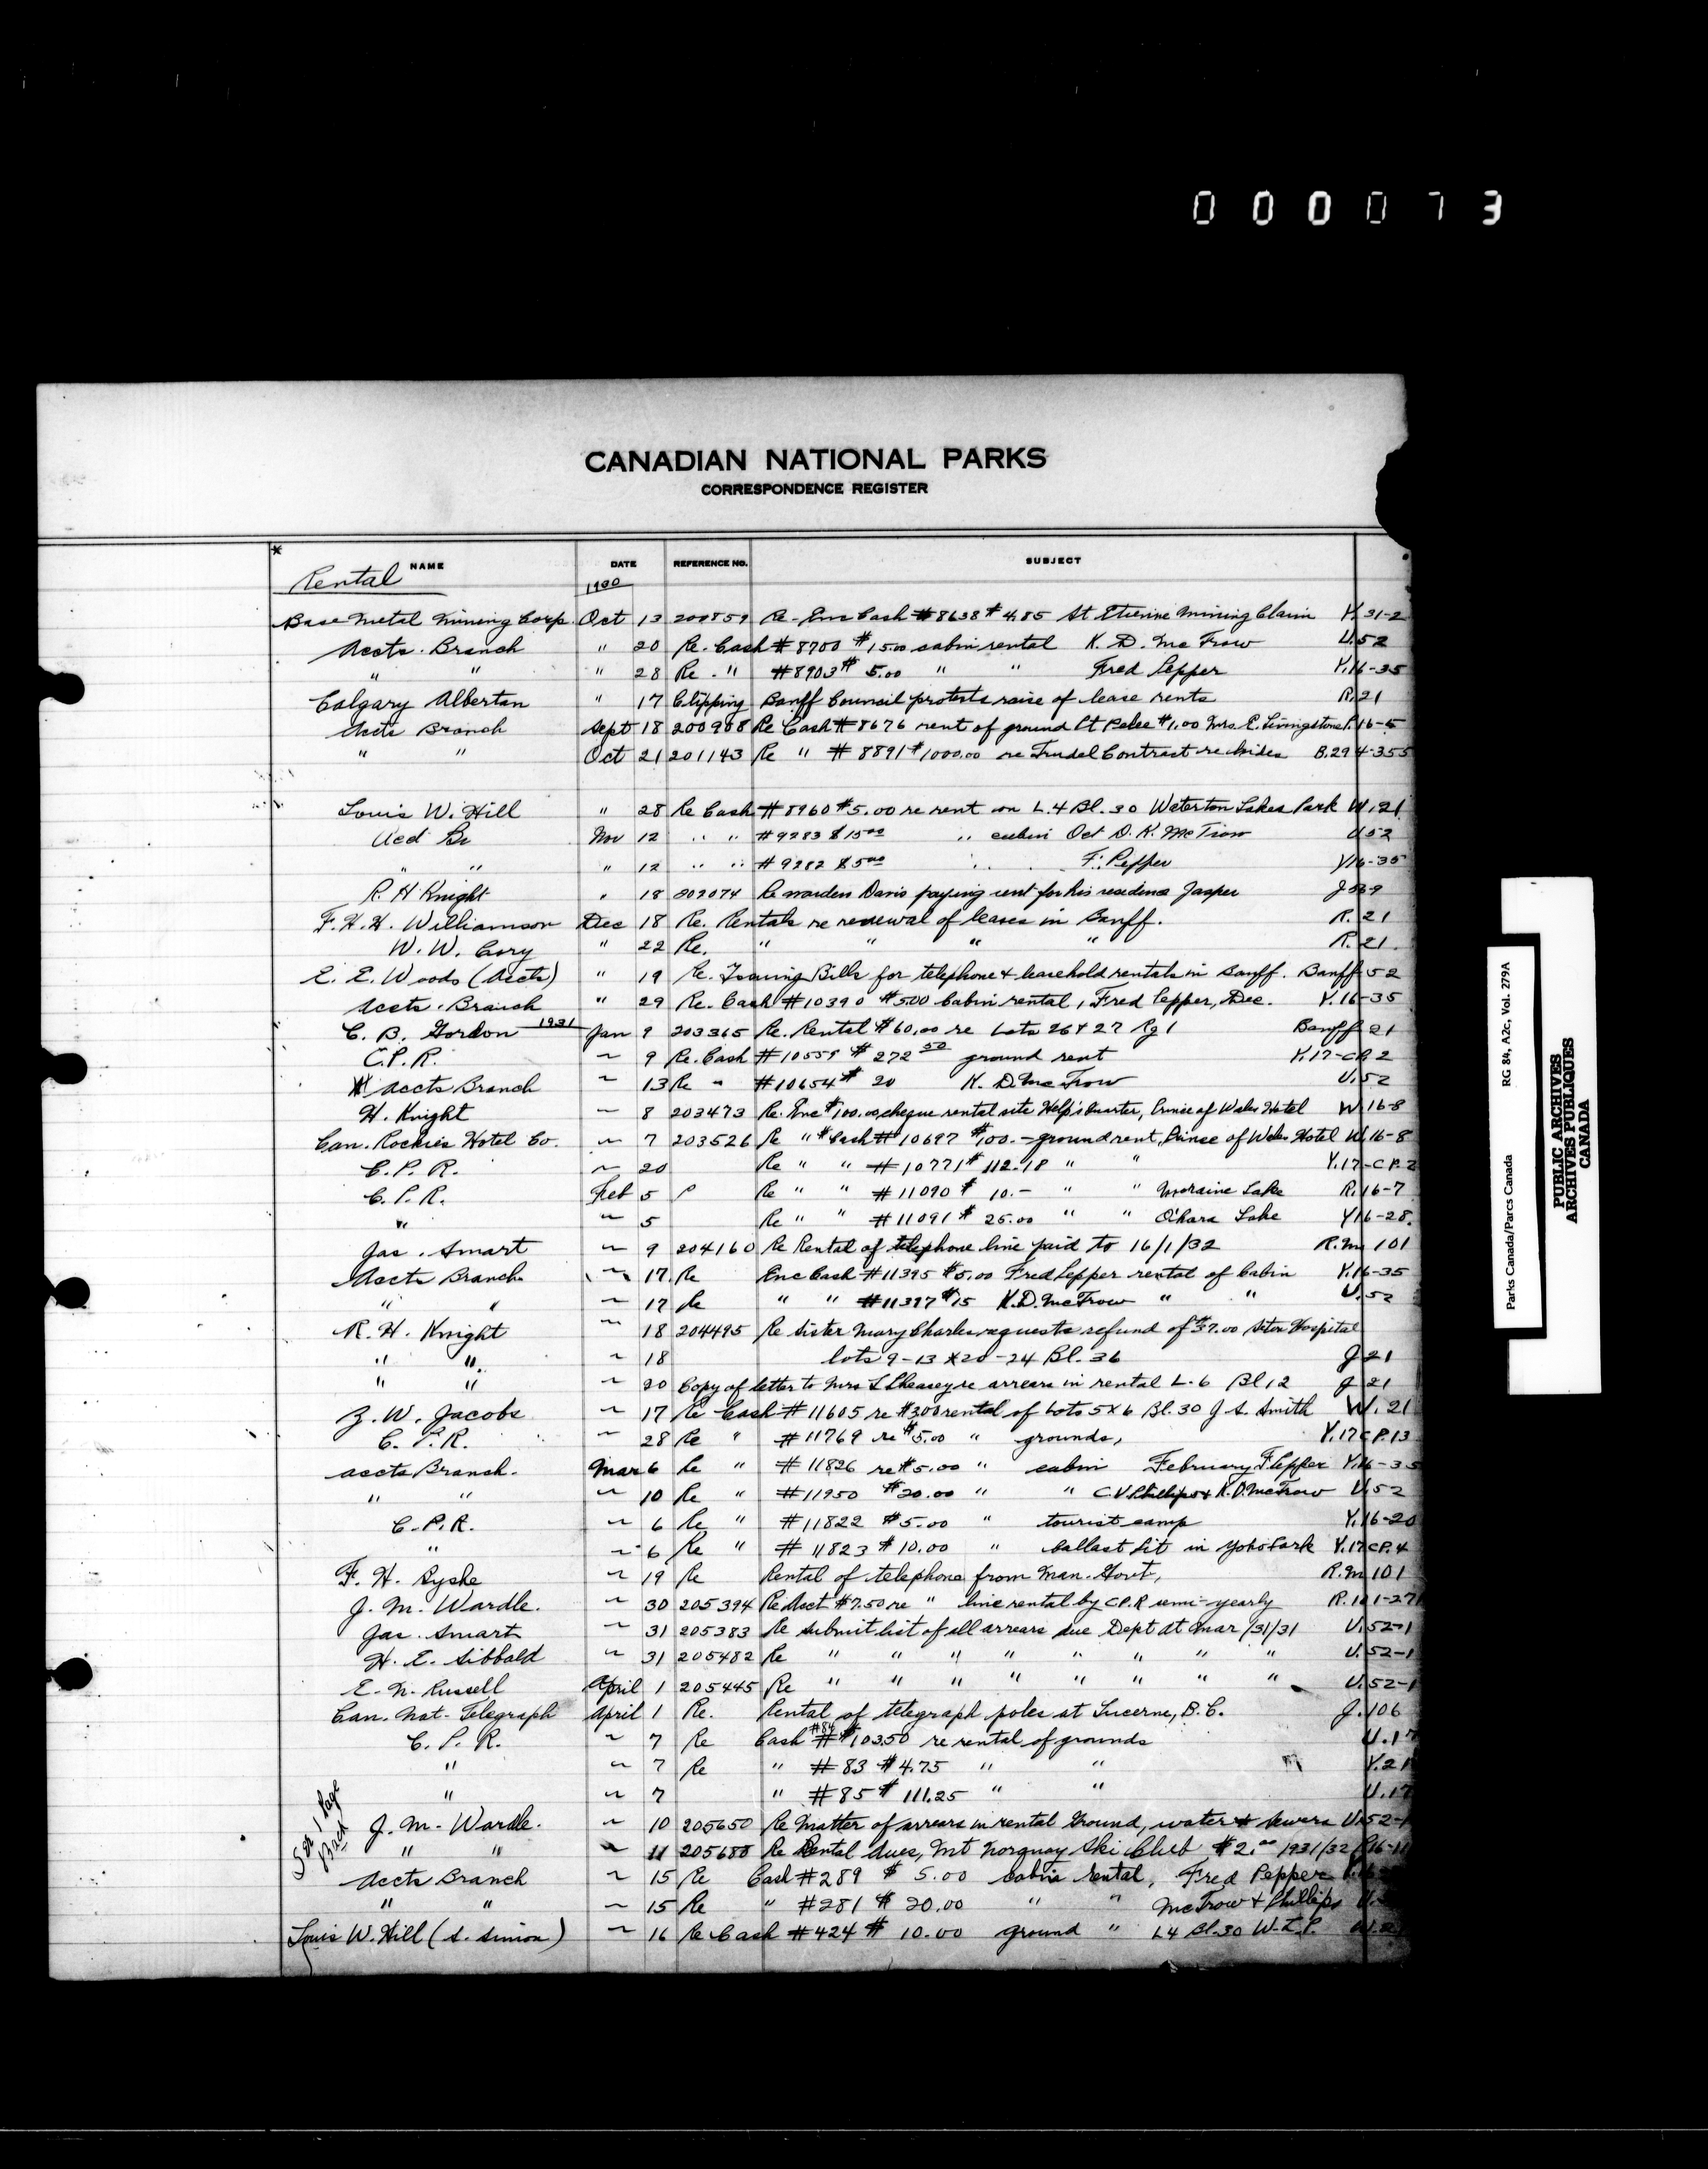 0 0 0 0 7 3
CANADIAN NATIONAL PARKS
CORRESPONDENCE REGISTER
* NAME DATE REFERENCE NO. SUBJECT
Rental 1930
Base Metal Mining Corp. Oct 13 200859 Re. Enc Cash #8638 $4.85 St Etienne Mining Claim Y.31-2
Accts. Branch " 20 Re. Cash #8700 $15.00 cabin rental K. D. McTrow U.52
" " " 28 Re. " #8903 $5.00 " " Fred Pepper Y.16-35
Calgary Albertan " 17 Clipping Banff Council protests raise of lease rents R.21
Accts Branch Sept 18 200908 Re Cash #8676 rent of ground Pt Pelee $1.00 Mrs. E. Livingstone P.16-5
" " Oct 21 201143 Re " #8891 $1000.00 re Trudel Contract re hides B.294-355
Louis W. Hill " 28 Re Cash #8960 $5.00 re rent on L.4 Bl. 30 Waterton Lakes Park W.21
Acct Br Nov 12 " " #9283 $15.00 " cabin Oct D. K. McTrow U52
" " " 12 " " #9282 $5.00 " F. Pepper Y16-35
R. H Knight " 18 202074 Re warden Davis paying rent for his residence Jasper
F. H. H. Williamson Dec 18 Re. Rentals re renewal of leases in Banff. R.21
W. W. Cory " 22 Re. " " " " R.21.
E. E. Woods (Accts) " 19 Re. Issuing Bills for telephone & leasehold rentals in Banff. Banff 52
Accts. Branch " 29 Re. Cash #10390 $5.00 Cabin rental, Fred Pepper, Dec. Y.16-35
C. B. Gordon 1931 Jan 9 203365 Re. Rental $60.00 re Lots 26 & 27 Rg 1 Banff 21
C.P.R. ~ 9 Re. Cash #10559 $272 50 ground rent Y.17-CP.2
Accts Branch ~ 13 Re " #10654 $20 K. D. McTrow U.52
H. Knight ~ 8 203473 Re. Enc $100.00 cheque rental site Help's Quarter, Prince of Wales Hotel W.16-8
Can. Rockies Hotel Co. ~ 7 203526 Re " Cash #10697 $100.- ground rent, Prince of Wales Hotel W.16-8
C. P. R. ~ 20 Re " " #10771 $112.18 " " Y.17-C.P.2
C. P. R. Feb 5 Re " " #11090 $10.- " " Moraine Lake R.16-7
" ~ 5 Re " " #11091 $25.00 " " O'hara Lake Y16-28.
Jas. Smart ~ 9 204160 Re Rental of telephone line paid to 16/1/32 R.M. 101
Accts Branch ~ 17. Re Enc Cash #11395 $5.00 Fred Pepper rental of Cabin Y.16-35
" " ~ 17 Re " " #11397 $15 K.D. McTrow " " U.52
R. H. Knight ~ 18 204495 Re Sister Mary Charles requests refund of $37.00 Seton Hospital
" " ~ 18 lots 9-13 & 20-24 Bl. 36 J 21
" " ~ 20 Copy of letter to Mrs re arrears in rental L.6 Bl 12 J 21
Z. W. Jacobs ~ 17 Re Cash #11605 re $3.00 rental of Lots 5 & 6 Bl. 30 J S. Smith W.21
C. P. R. ~ 28 Re " #11769 re $5.00 " grounds, Y.17CP.13
Accts Branch. Mar 6 Re " #11826 re $5.00 " cabin February F Pepper Y.16-35
" " ~ 10 Re " #11950 $20.00 " " C.V. Phillips & K. D. McTrow U.52
C. P. R. ~ 6 Re " #11822 $5.00 " tourist camp Y.16-20
" ~ 6 Re " #11823 $10.00 " ballast Pit in Yoho Park Y.17CP.4
F. H. Byshe ~ 19 Re Rental of telephone from Man. Govt, R.M 101
J. M. Wardle. ~ 30 205394 Re Acct $7.50 re " line rental by C.P.R semi-yearly R.101-27
Jas. Smart ~ 31 205383 Re submit list of all arrears due Dept at Mar/31/31 U.52-1
H. E. Sibbald ~ 31 205482 Re " " " " " " " " U.52-1
E. N. Russell April 1 205445 Re " " " " " " " " U.52-1
Can. Nat. Telegraph April 1 Re. Rental of telegraph poles at Lucerne, B.C. J.106
C. P. R. ~ 7 Re Cash #84 $103.50 re rental of grounds U.17
" ~ 7 Re " #83 $4.75 " " Y.21
" ~ 7 " #85 $111.25 " " U.17
See 1 Page Back
J. M. Wardle. ~ 10 205650 Re Matter of arrears in rental Ground, water & Sewers U.52-1
" " ~ 11 205688 Re Rental dues, Mt Norquay Ski Club $2.00 1931/32 R16-11
Accts Branch ~ 15 Re Cash #289 $5.00 cabin rental, Fred Pepper
" " ~ 15 Re " #281 $20.00 " " McTrow & Phillips
Louis W. Hill (S. Simon) ~ 16 Re Cash #424 $10.00 ground " L4 Bl.30 W.L.P.
Parks Canada/Parcs Canada RG 84, A2c, Vol. 279A
PUBLIC ARCHIVES
ARCHIVES PUBLIQUES
CANADA